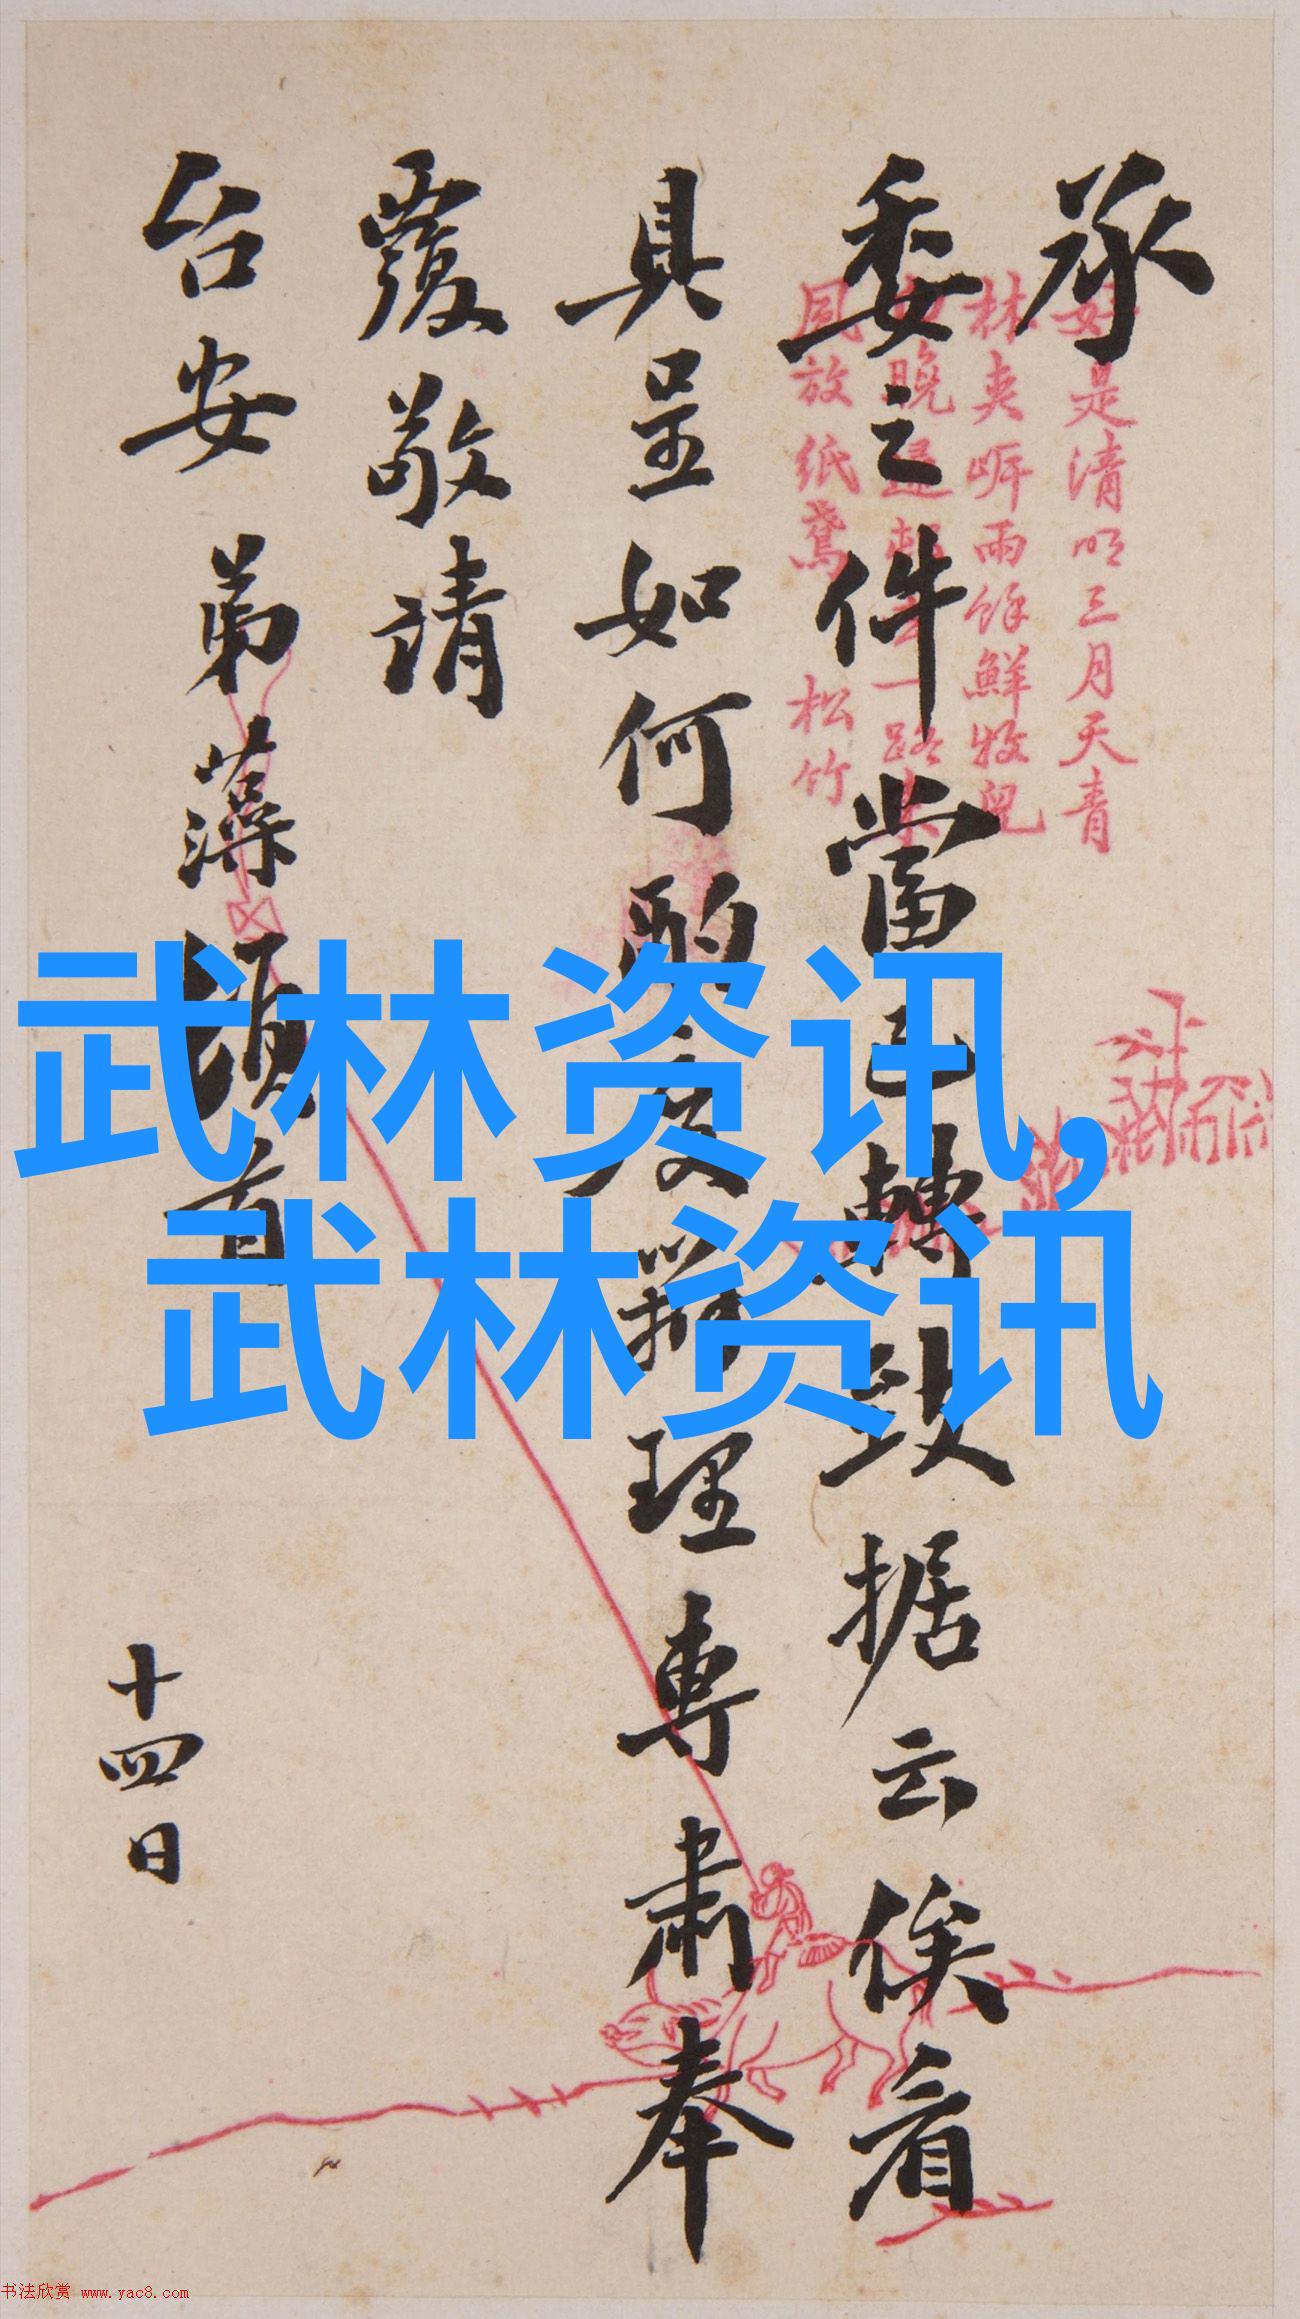 承
委之件當已轉致据云俟看
具呈如何酌度辦理專肅奉
覆敬請
台安 弟藻頓首
十四日
好是清明三月天青
林夾岍雨餘鮮牧兒
晚歸一路
風放紙鳶 松竹
武林资讯,
武林资讯
书法欣赏 www.yac8.com